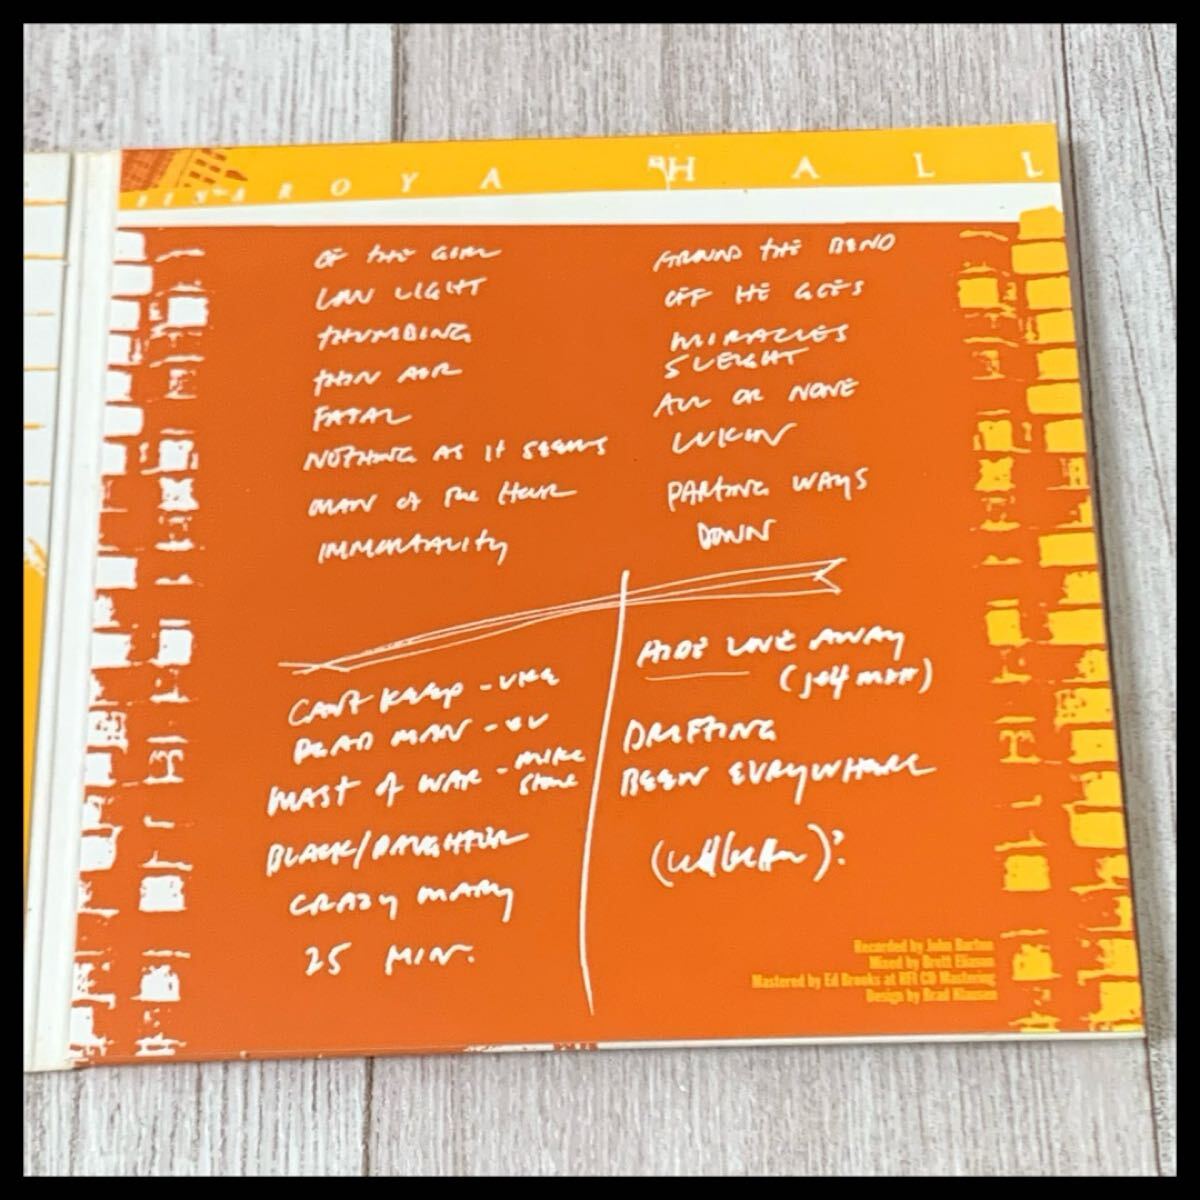 BENAROYA HALL
OF THE GIRL
LOW LIGHT
THUMBING
THIN AIR
FATAL
NOTHING AS IT SEEMS
MAN OF THE HOUR
IMMORTALITY
AROUND THE BEND
OFF HE GOES
MIRACLES
SLEIGHT
ALL OR NONE
LUKIN
PARTING WAYS
DOWN
CANT KEEP - UKE
DEAD MAN - EV
MAST OF WAR - MIKE
STONE
BLACK/DAUGHTER
CRAZY MARY
25 MIN.
HIDE LOVE AWAY
(jeff matt)
DRIFTING
BEEN EVRYWHERE
Recorded by John Burton
Mixed by Brett Eliason
Mastered by Ed Brooks at RFI CD Mastering
Design by Brad Klausen